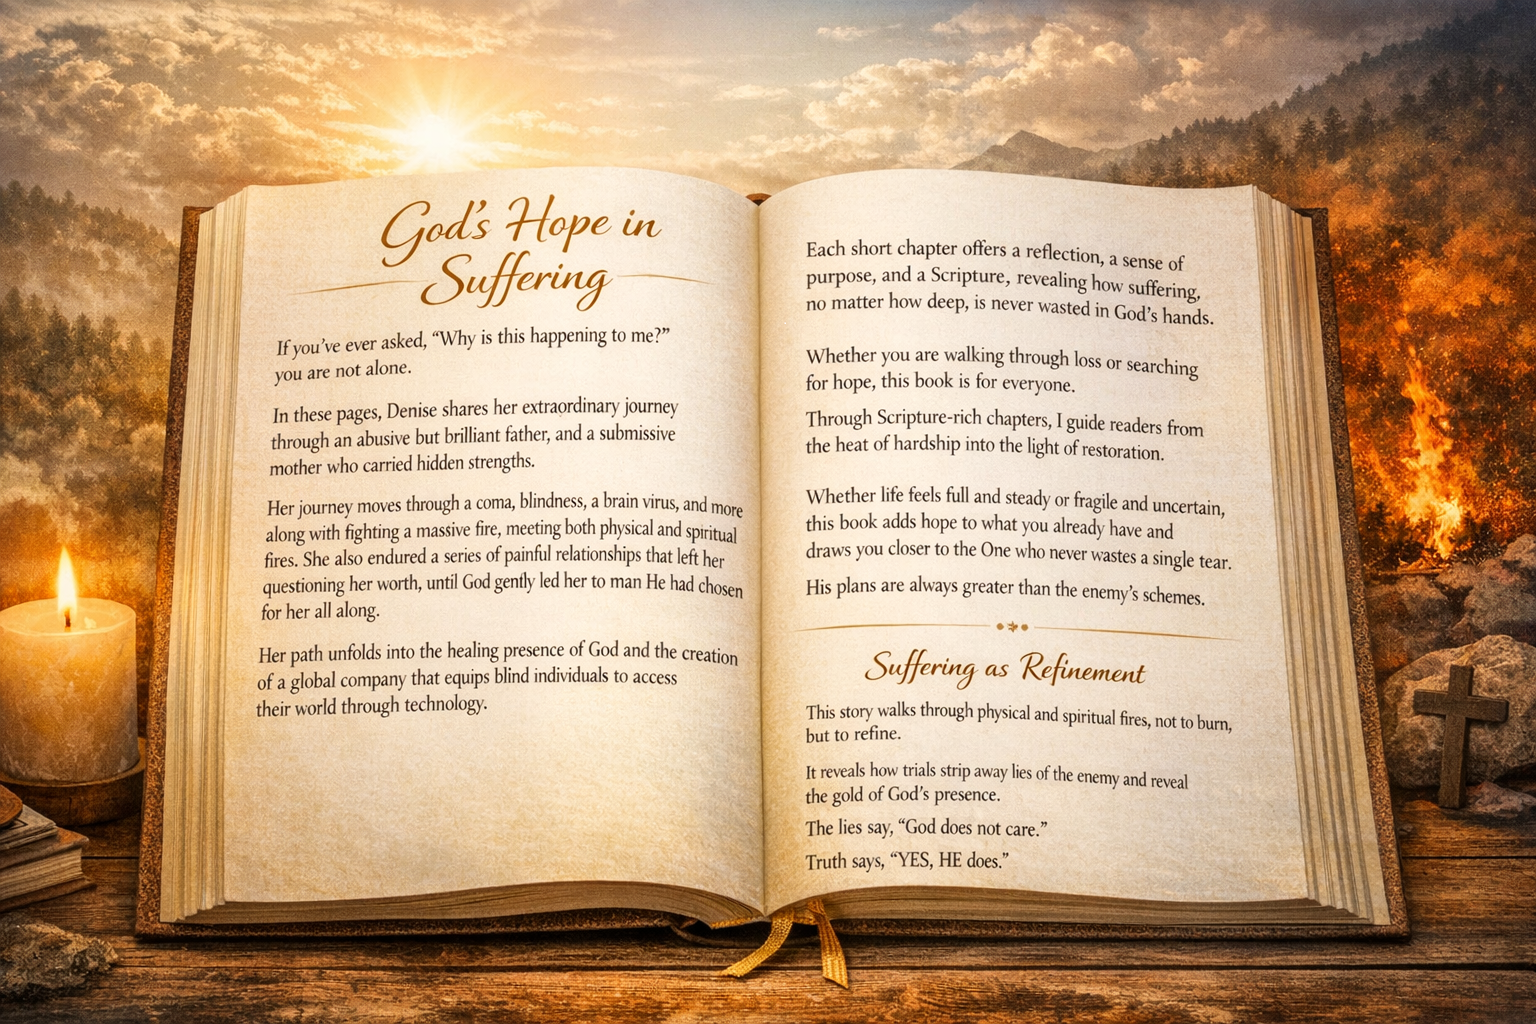 God's Hope in
Suffering
If you've ever asked, “Why is this happening to me?”
you are not alone.
In these pages, Denise shares her extraordinary journey
through an abusive but brilliant father, and a submissive
mother who carried hidden strengths.
Her journey moves through a coma, blindness, a brain virus, and more
along with fighting a massive fire, meeting both physical and spiritual
fires. She also endured a series of painful relationships that left her
questioning her worth, until God gently led her to man He had chosen
for her all along.
Her path unfolds into the healing presence of God and the creation
of a global company that equips blind individuals to access
their world through technology.
Each short chapter offers a reflection, a sense of
purpose, and a Scripture, revealing how suffering,
no matter how deep, is never wasted in God's hands.
Whether you are walking through loss or searching
for hope, this book is for everyone.
Through Scripture-rich chapters, I guide readers from
the heat of hardship into the light of restoration.
Whether life feels full and steady or fragile and uncertain,
this book adds hope to what you already have and
draws you closer to the One who never wastes a single tear.
His plans are always greater than the enemy's schemes.
Suffering as Refinement
This story walks through physical and spiritual fires, not to burn,
but to refine.
It reveals how trials strip away lies of the enemy and reveal
the gold of God's presence.
The lies say, “God does not care.”
Truth says, “YES, HE does.”